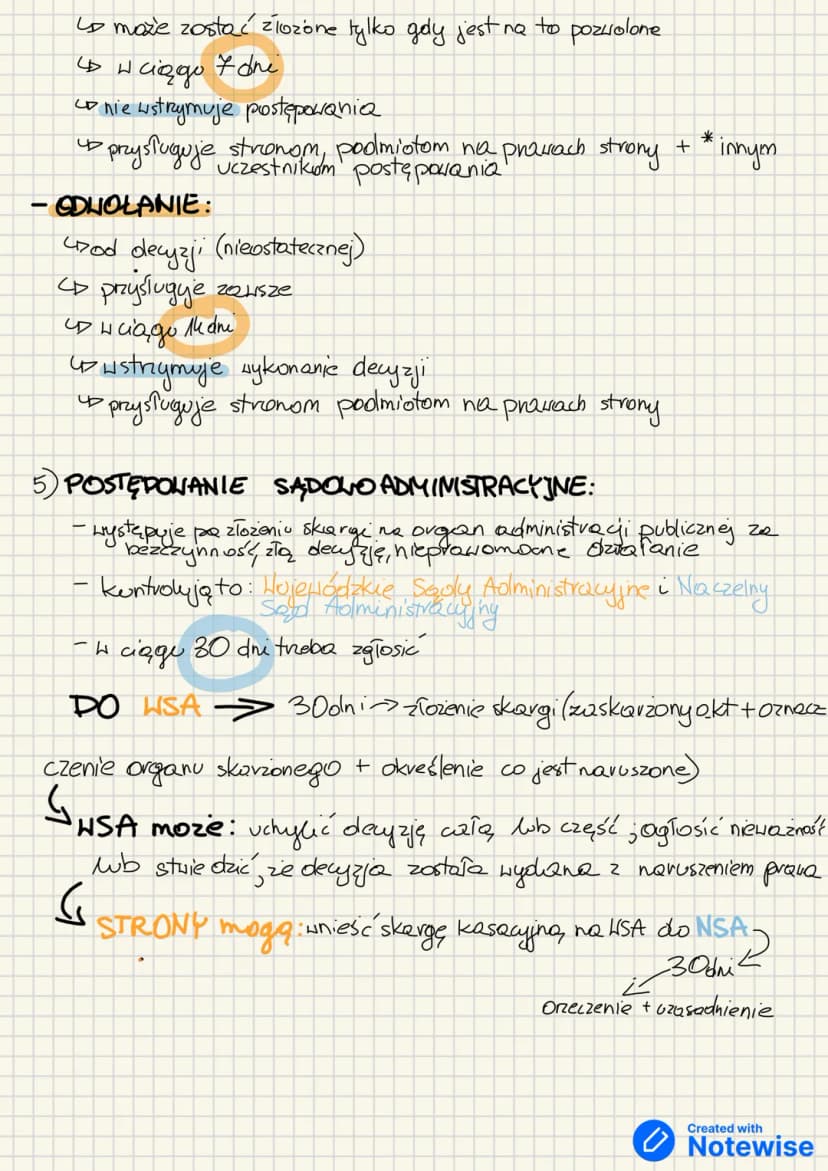 ↳ może zostać złożone tylko gdy jest na to pozwolone
↳ w ciągu 7 dni
↳ nie wstrzymuje postępowania
↳ przysługuje stronom, podmiotom na prawach strony + *innym
uczestnikom postępowania
- ODWOŁANIE:
↳ od decyzji (nieostatecznej)
↳ przysługuje zawsze
↳ w ciągu 14 dni
↳ wstrzymuje wykonanie decyzji
↳ przysługuje stronom podmiotom na prawach strony
5) POSTĘPOWANIE SĄDOWOADMINISTRACYJNE:
- występuje po złożeniu skargi na organ administracji publicznej za
bezczynność, złą decyzję, nieprawomocne działanie
- kontrolują to: Wojewódzkie Sądy Administracyjne i Naczelny
Sąd Administracyjny
- w ciągu 30 dni trzeba zgłosić
DO WSA → 30dni → złożenie skargi (zaskarżony akt + oznacz
czenie organu skarżonego + określenie co jest naruszone)
↳ WSA może: uchylić decyzję całą lub część ; ogłosić nieważność
lub stwierdzić, że decyzja została wydana z naruszeniem prawa
↳ STRONY mogą: wnieść skargę kasacyjną na WSA do NSA
30dni
orzeczenie + uzasadnienie
Created with
Notewise